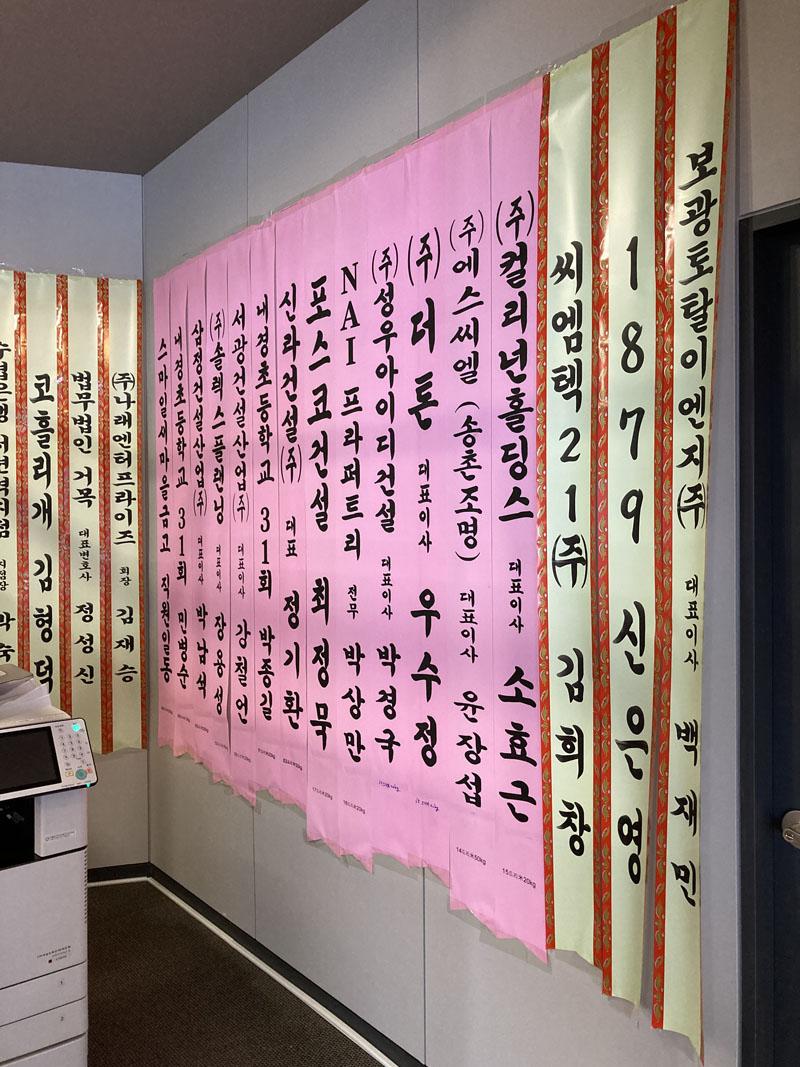 법무법인 거목 대표변호사 정성신
코흘리개 김형덕
(주)나래엔터프라이즈 회장 김재승
스마일새마을금고 직원일동
내경초등학교 31회 민병순
삼정건설산업(주) 대표이사 박남석
(주)솔렉스플래닝 대표이사 장용성
서광건설산업(주) 대표이사 강철언
내경초등학교 31회 박종길
신라건설(주) 대표 정기환
포스코건설 최정묵
NAI 프라퍼트리 전무 박상만
(주)성우아이디건설 대표이사 박경국
(주)더톤 대표이사 우수정
(주)에스씨엘 (송촌조명) 대표이사 윤장섭
(주)컬리넌홀딩스 대표이사 소효근
씨엠텍21(주) 김희창
1879 신은영
보광토탈이엔지(주) 대표이사 백재민